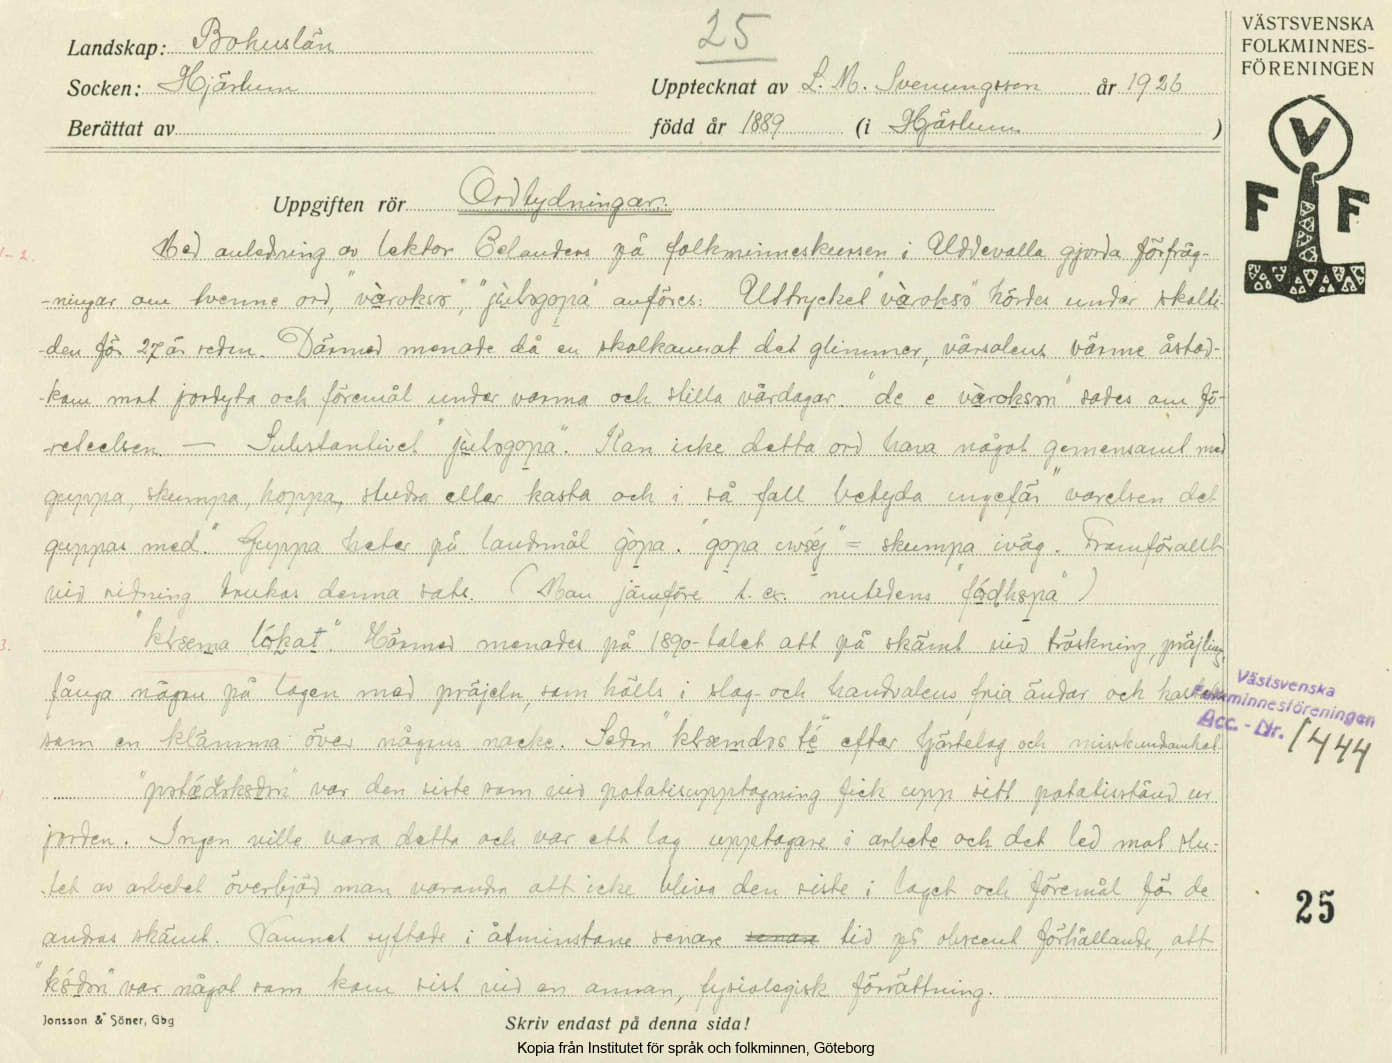 25
VÄSTSVENSKA
FOLKMINNES-
FÖRENINGEN
Landskap: Bohuslän
Socken: Hjärtum
Upptecknat av L. M. Svenungsson år 1926
Berättat av
född år 1889 (i Hjärtum )
V F F
Uppgiften rör Ordtydningar.
1-2.
Med anledning av lektor Belanders på folkminneskursen i Uddevalla gjorda förfråg-
-ningar om tvenne ord, "våroksə", "julsgopa" anföres: Uttrycket "våroksə" hördes under skolti-
-den för 27 år seden. Därmed menade då en skolkamrat det glimmer, vårsolens värme åstad-
-kom mot jordyta och föremål under varma och stilla vårdagar. "de e våroksən" sades om fö-
-reteelsen. — Substantivet "julsgopa". Kan icke detta ord hava något gemensamt med
guppa, skumpa, hoppa, studsa eller kasta och i så fall betyda ungefär "varelsen det
guppar med." Guppa heter på landmål gopa. "gopa = skumpa iväg. Framförallt
vid ridning brukas denna sats. (Man jämföre t. ex. nutidens
3.
"klsema lokat". Härmed menades på 1890-talet att på skämt vid tröskning, präjling,
fånga någon på logen med präjeln, som hölls i slag- och handvalens fria ändar och kastades
som en klämma över någons nacke. Seden efter hjärtelag och misskundsamhet
var den siste som vid potatisupptagning fick upp sitt potatisstånd ur
jorden. Ingen ville vara detta och var ett lag upptagare i arbete och det led mot slu-
-tet av arbetet överbjöd man varandra att icke bliva den siste i laget och föremål för de
andras skämt. Namnet syftade i åtminstone senare tid på obscent förhållande, att
var något som kom sist vid en annan, fysiologisk förrättning.
Västsvenska
Folkminnesföreningen
Acc. - Nr. 1444
25
Jonsson & Söner, Gbg
Skriv endast på denna sida!
Kopia från Institutet för språk och folkminnen, Göteborg